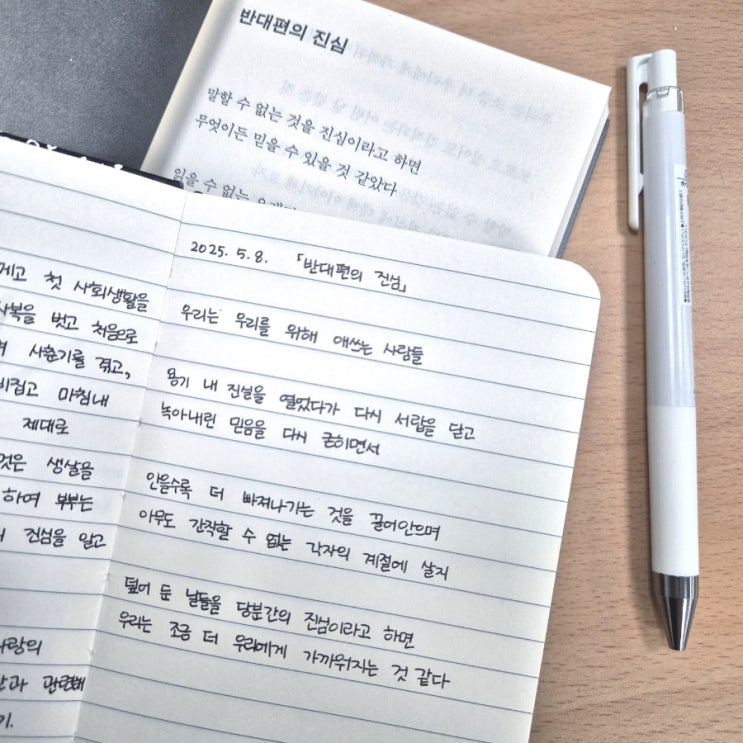 반대편의 진심
말할 수 없는 것을 진심이라고 하면
무엇이든 믿을 수 있을 것 같았다
읽을 수 없는
2025. 5. 8. 「반대편의 진심」
우리는 우리를 위해 애쓰는 사람들
용기 내 진심을 열었다가 다시 서랍을 닫고
녹아내린 믿음을 다시 굳히면서
안을수록 더 빠져나가는 것을 끌어안으며
아무도 간직할 수 없는 각자의 계절에 살지
덮어 둔 날들을 당분간의 진심이라고 하면
우리는 조금 더 우리에게 가까워지는 것 같다
첫 사회생활을
벗고 처음으로
사춘기를 겪고,
비집고 마침내
제대로
것은 생살을
하여 부부는
진심을 알고
사랑의
관련해